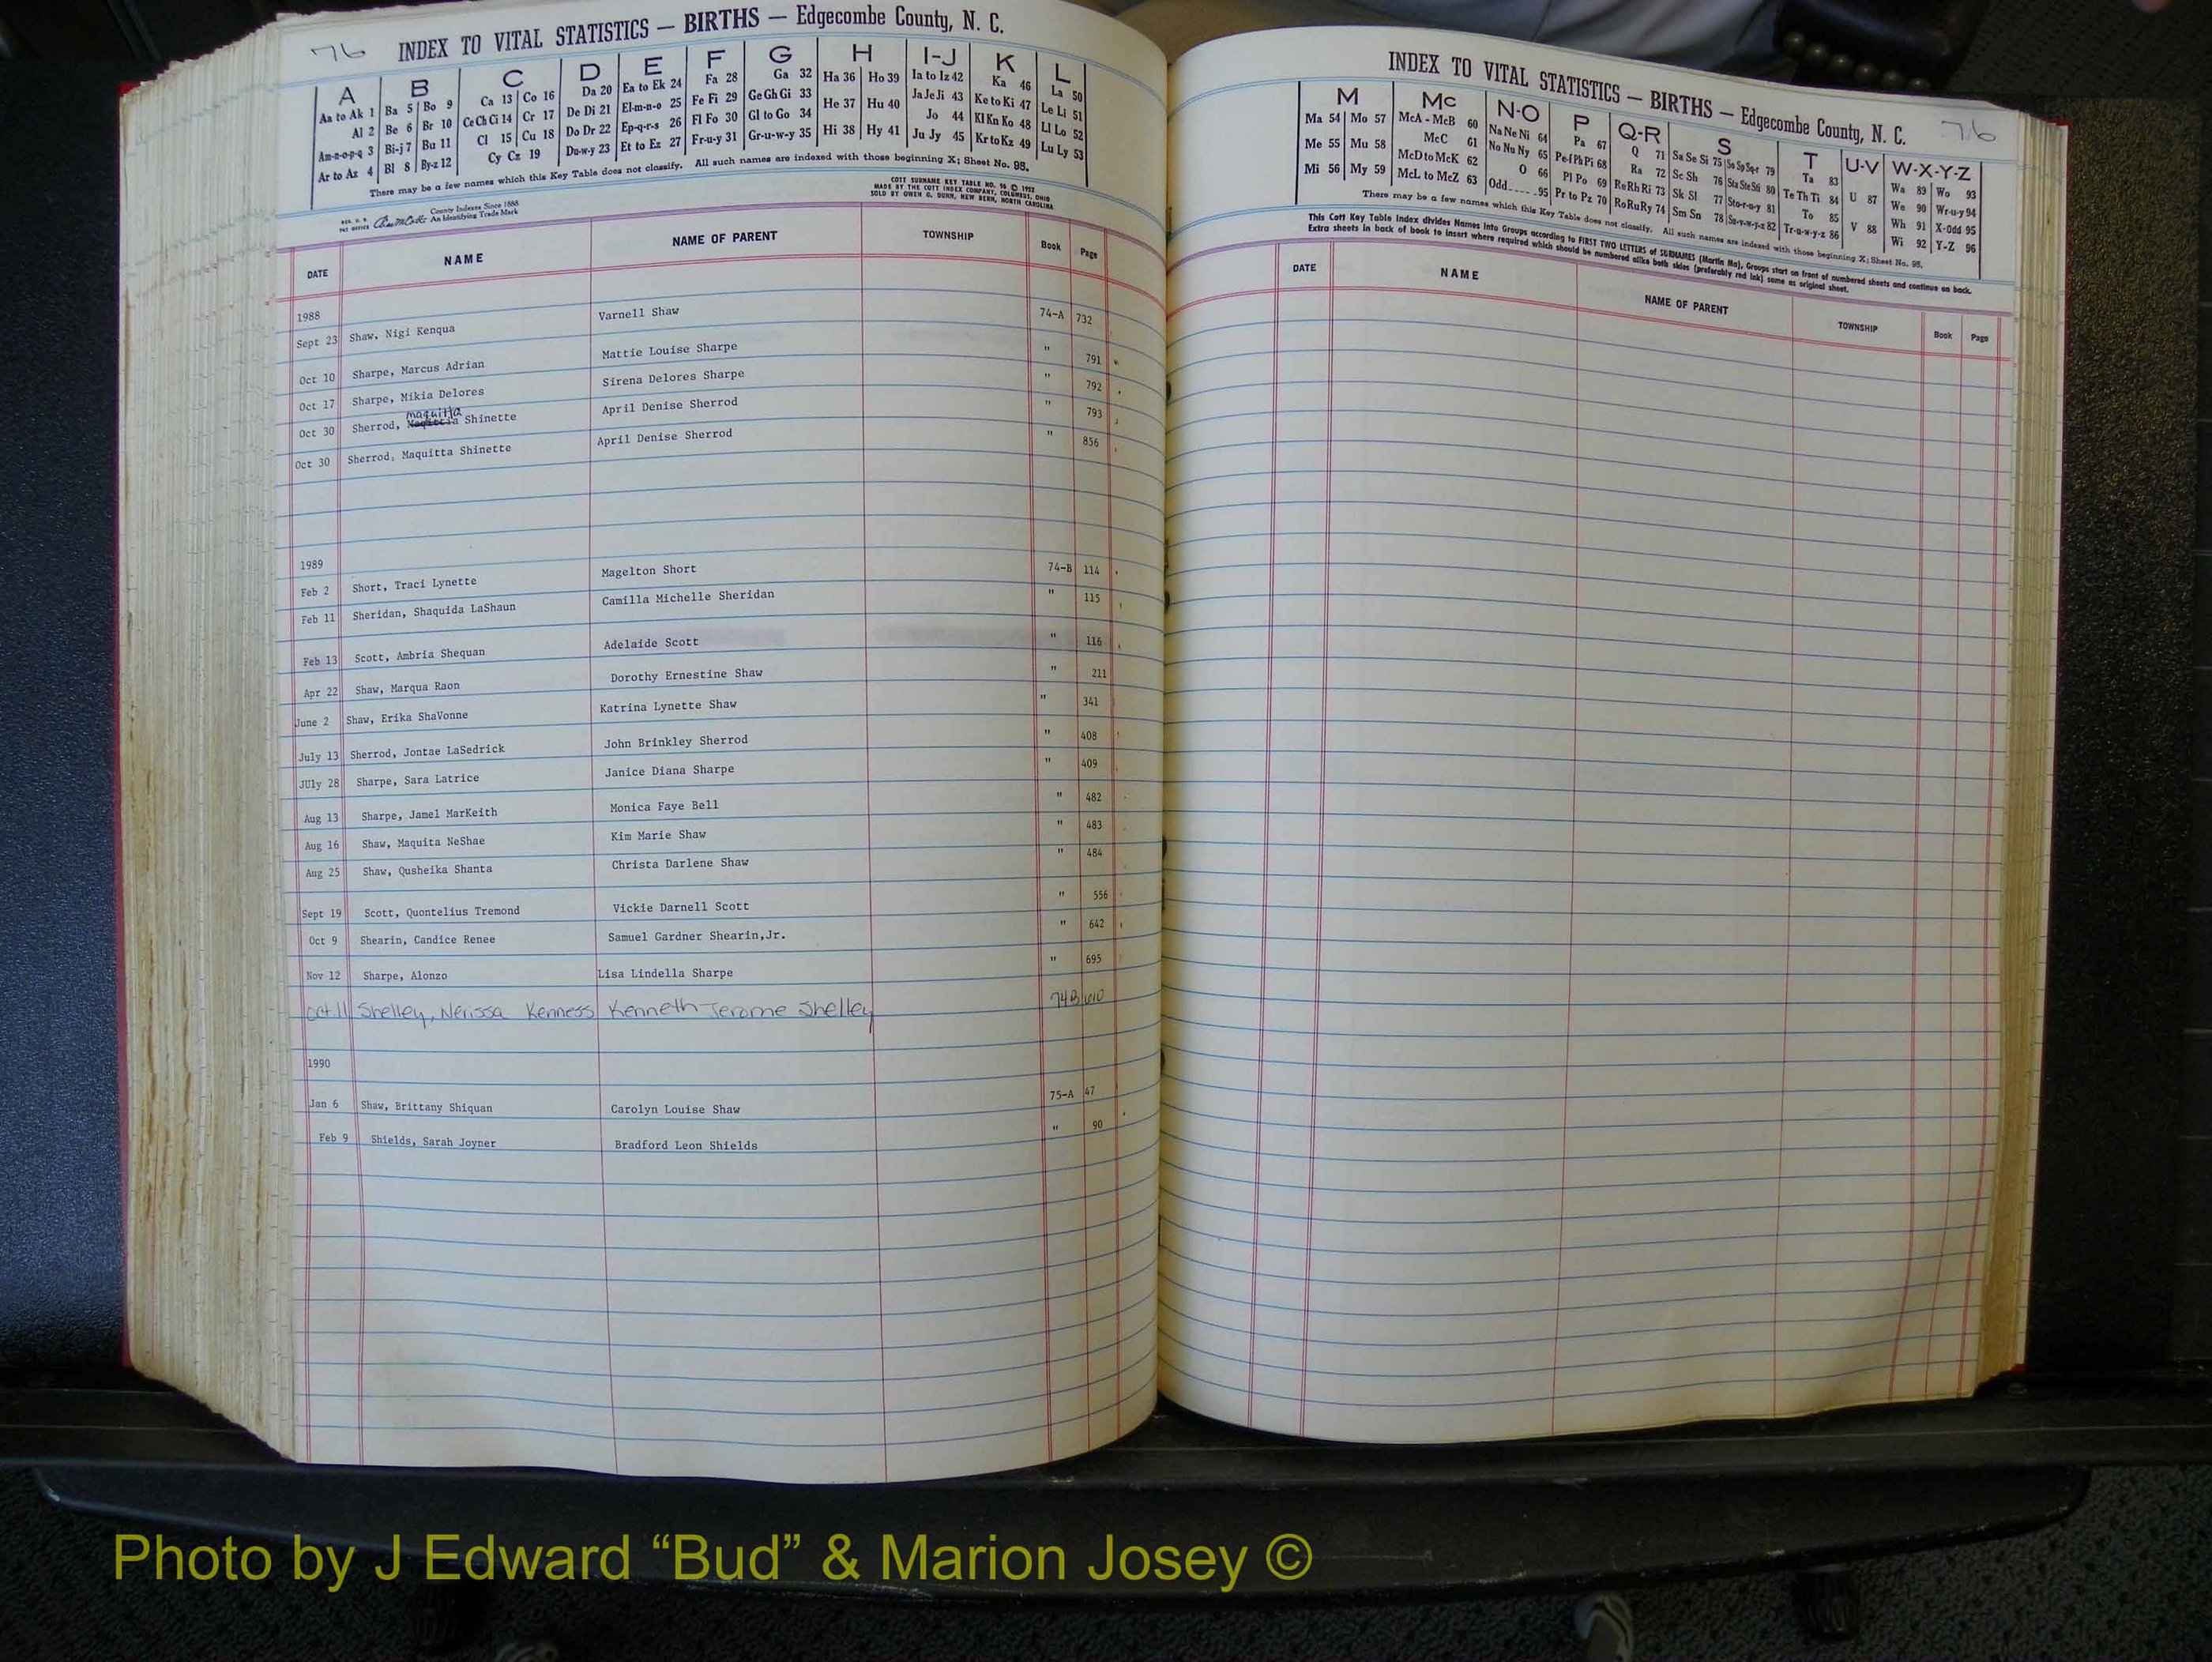 76 INDEX TO VITAL STATISTICS — BIRTHS — Edgecombe County, N. C.
A B C D E F G H I-J K L
Aa to Ak 1 Ba 5 Bo 9 Ca 13 Co 16 Da 20 Ea to Ek 24 Fa 28 Ga 32 Ha 36 Ho 39 Ia to Iz 42 Ka 46 La 50
Al 2 Be 6 Br 10 Ce Ch Ci 14 Cr 17 De Di 21 El-m-n-o 25 Fe Fi 29 Ge Gh Gi 33 He 37 Hu 40 Ja Je Ji 43 Ke to Ki 47 Le Li 51
Am-n-o-p-q 3 Bi-j 7 Bu 11 Cl 15 Cu 18 Do Dr 22 Ep-q-r-s 26 Fl Fo 30 Gl to Go 34 Hi 38 Hy 41 Jo 44 Kl Kn Ko 48 Ll Lo 52
Ar to Az 4 Bl 8 By-z 12 Cy Cz 19 Du-w-y 23 Et to Ez 27 Fr-u-y 31 Gr-u-w-y 35 Ju Jy 45 Kr to Kz 49 Lu Ly 53
There may be a few names which this Key Table does not classify. All such names are indexed with those beginning X; Sheet No. 95.
County Indexes Since 1888
An Identifying Trade Mark
COTT SURNAME KEY TABLE NO. 96 © 1952
MADE BY THE COTT INDEX COMPANY, COLUMBUS, OHIO
SOLD BY OWEN G. DUNN, NEW BERN, NORTH CAROLINA
DATE NAME NAME OF PARENT TOWNSHIP Book Page
1988
Sept 23 Shaw, Nigi Kenqua Varnell Shaw 74-A 732
Oct 10 Sharpe, Marcus Adrian Mattie Louise Sharpe " 791
Oct 17 Sharpe, Mikia Delores Sirena Delores Sharpe " 792
maquitta
Oct 30 Sherrod, Shinette April Denise Sherrod " 793
Oct 30 Sherrod, Maquitta Shinette April Denise Sherrod " 856
1989
Feb 2 Short, Traci Lynette Magelton Short 74-B 114
Feb 11 Sheridan, Shaquida LaShaun Camilla Michelle Sheridan " 115
Feb 13 Scott, Ambria Shequan Adelaide Scott " 116
Apr 22 Shaw, Marqua Raon Dorothy Ernestine Shaw " 211
June 2 Shaw, Erika ShaVonne Katrina Lynette Shaw " 341
July 13 Sherrod, Jontae LaSedrick John Brinkley Sherrod " 408
JUly 28 Sharpe, Sara Latrice Janice Diana Sharpe " 409
Aug 13 Sharpe, Jamel MarKeith Monica Faye Bell " 482
Aug 16 Shaw, Maquita NeShae Kim Marie Shaw " 483
Aug 25 Shaw, Qusheika Shanta Christa Darlene Shaw " 484
Sept 19 Scott, Quontelius Tremond Vickie Darnell Scott " 556
Oct 9 Shearin, Candice Renee Samuel Gardner Shearin,Jr. " 642
Nov 12 Sharpe, Alonzo Lisa Lindella Sharpe " 695
Oct. 11 Shelley, Nerissa Kenness Kenneth Jerome Shelley 74B 610
1990
Jan 6 Shaw, Brittany Shiquan Carolyn Louise Shaw 75-A 47
Feb 9 Shields, Sarah Joyner Bradford Leon Shields " 90
INDEX TO VITAL STATISTICS — BIRTHS — Edgecombe County, N. C. 76
M Mc N-O P Q-R S T U-V W-X-Y-Z
Ma 54 Mo 57 McA - McB 60 Na Ne Ni 64 Pa 67 Q 71 Sa Se Si 75 So Sp Sq-r 79 Ta 83 U 87 Wa 89 Wo 93
Me 55 Mu 58 McC 61 No Nu Ny 65 Pe-f Ph Pi 68 Ra 72 Sc Sh 76 Sta Ste Sti 80 Te Th Ti 84 V 88 We 90 Wr-u-y 94
Mi 56 My 59 McD to McK 62 O 66 Pl Po 69 Re Rh Ri 73 Sk Sl 77 Sto-r-u-y 81 To 85 Wh 91 X-Odd 95
McL to McZ 63 Odd 95 Pr to Pz 70 Ro Ru Ry 74 Sm Sn 78 Su-v-w-y-z 82 Tr-u-w-y-z 86 Wi 92 Y-Z 96
There may be a few names which this Key Table does not classify. All such names are indexed with those beginning X; Sheet No. 95.
This Cott Key Table Index divides Names into Groups according to FIRST TWO LETTERS of SURNAMES (Martin Ma), Groups start on front of numbered sheets and continue on back.
Extra sheets in back of book to insert where required which should be numbered alike both sides (preferably red ink) same as original sheet.
DATE NAME NAME OF PARENT TOWNSHIP Book Page
Photo by J Edward “Bud” & Marion Josey ©